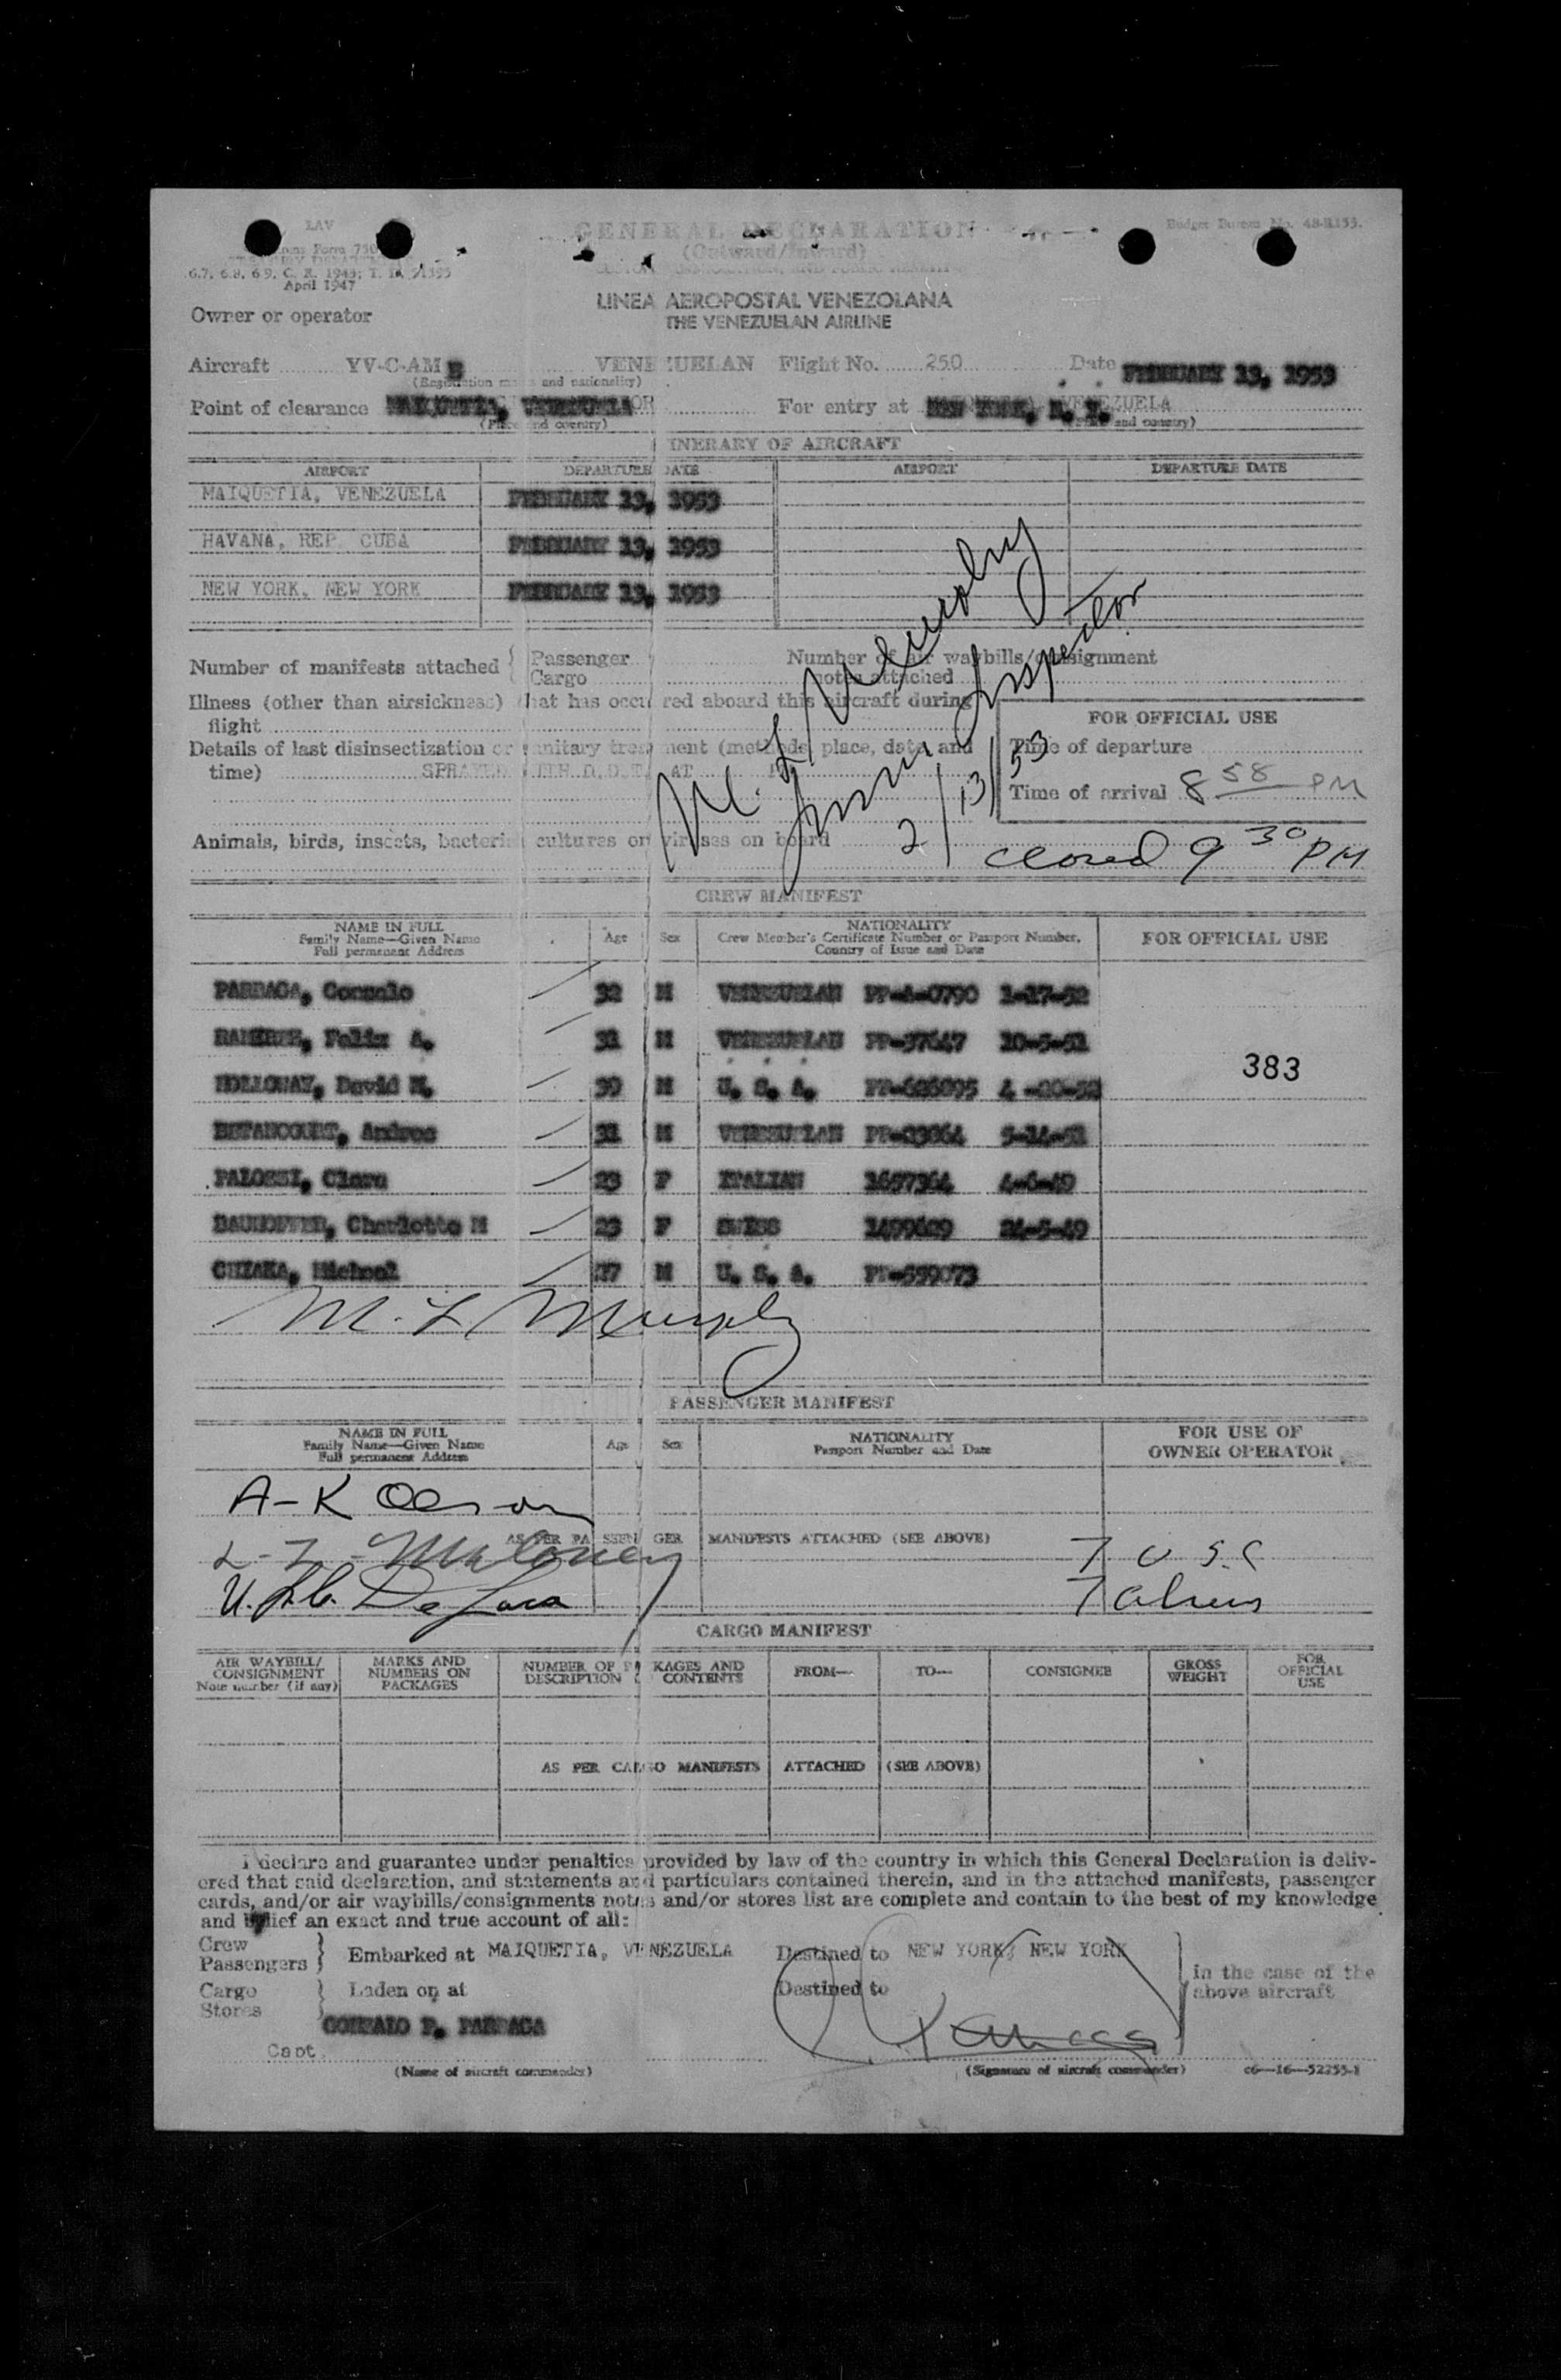 LAV
GENERAL DECLARATION
Budget Bureau No. 48-R153.
Form 750
(Outward/Inward)
6.7, 6.8, 6.9, C. R. 1943; T. D.
April 1947
LINEA AEROPOSTAL VENEZOLANA
Owner or operator
THE VENEZUELAN AIRLINE
Aircraft YV-C-AM VENEZUELAN Flight No. 250 Date FEBRUARY 13, 1953
(Registration marks and nationality)
Point of clearance MAIQUETIA, VENEZUELA For entry at NEW YORK, N. Y.
(Place and country) (Place and country)
ITINERARY OF AIRCRAFT
AIRPORT DEPARTURE DATE AIRPORT DEPARTURE DATE
MAIQUETIA, VENEZUELA FEBRUARY 13, 1953
HAVANA, REP. CUBA FEBRUARY 13, 1953
NEW YORK, NEW YORK FEBRUARY 13, 1953
M. L. Murphy
Immn. Inspector
2/13/53
Number of manifests attached { Passenger Number of air waybills/consignment
Cargo notes attached
Illness (other than airsickness) that has occurred aboard this aircraft during
flight
FOR OFFICIAL USE
Details of last disinsectization or sanitary treatment (methods, place, date, and
Time of departure
time) SPRAYED WITH D.D.T. AT
Time of arrival 8 58 PM
Animals, birds, insects, bacterial cultures or viruses on board
closed 9 30 PM
CREW MANIFEST
NAME IN FULL
Family Name—Given Name
Full permanent Address
Age Sex
NATIONALITY
Crew Member's Certificate Number or Passport Number,
Country of Issue and Date
FOR OFFICIAL USE
PARRAGA, Gonzalo 32 M VENEZUELAN PP-A-0790 1-17-52
RAMIREZ, Felix A. 31 M VENEZUELAN PP-37647 10-5-51
HOLLOWAY, David 39 M U. S. A. 4
383
BETANCOURT, Andres 31 M VENEZUELAN 5-14-51
PALOSSI, Clara 23 F ITALIAN 1697364 4-6-49
Charlotte M 23 F SWISS 1499629 24-5-49
Michael 37 M U. S. A. PP-599073
M. L. Murphy
PASSENGER MANIFEST
NAME IN FULL
Family Name—Given Name
Full permanent Address
Age Sex
NATIONALITY
Passport Number and Date
FOR USE OF
OWNER OPERATOR
A-K Olson
AS PER PASSENGER MANIFESTS ATTACHED (SEE ABOVE)
L-Z Maloney 7 U S C
De Lara 7 Aliens
CARGO MANIFEST
AIR WAYBILL/
CONSIGNMENT
Note number (if any)
MARKS AND
NUMBERS ON
PACKAGES
NUMBER OF PACKAGES AND
DESCRIPTION CONTENTS
FROM— TO— CONSIGNEE
GROSS
WEIGHT
FOR
OFFICIAL
USE
AS PER CARGO MANIFESTS ATTACHED (SEE ABOVE)
I declare and guarantee under penalties provided by law of the country in which this General Declaration is deliv-
ered that said declaration, and statements and particulars contained therein, and in the attached manifests, passenger
cards, and/or air waybills/consignments notes and/or stores list are complete and contain to the best of my knowledge
and belief an exact and true account of all:
Crew
Passengers } Embarked at MAIQUETIA, VENEZUELA Destined to NEW YORK, NEW YORK
in the case of the
above aircraft
Cargo } Laden on at Destined to
Stores
GONZALO P. PARRAGA
Capt.
(Name of aircraft commander) (Signature of aircraft commander) c6—16—52255-1